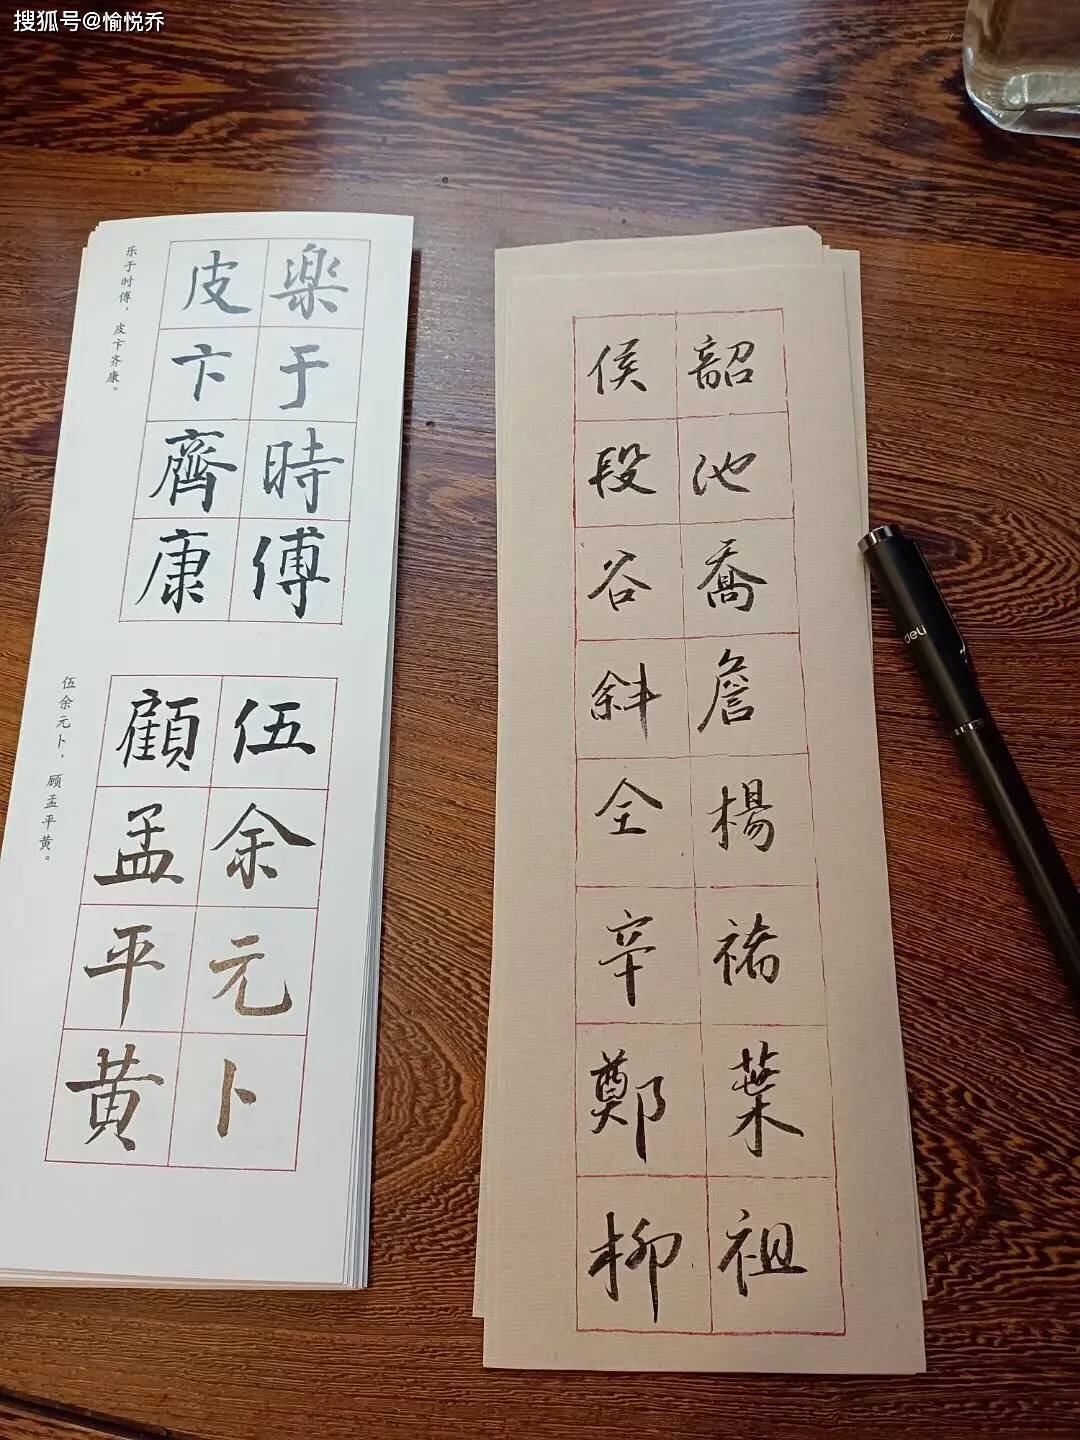 搜狐号@愉悦乔
樂于時傅
皮卞齊康
乐于时傅，皮卞齐康。
伍余元卜
顧孟平黄
伍余元卜，顾孟平黄。
韶池喬詹楊褚葉祖
侯段谷斜全辛鄭柳
deli